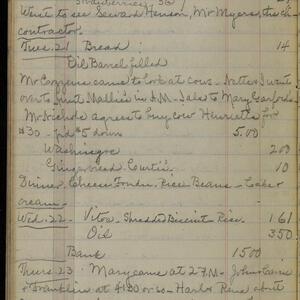 Went to see Seward Henson, Mr Myers, the
contractor
Tues. 21 Bread 14
Oil Barrel filled
Mr Coggens came to look at cows - Nettie & I went
over to Aunt Mollie's in A.M. - Jake to Mary Gaxfords
Mr Nichols agrees to buy cow Henrietta for
$30 - pd $5 down 5.00
Washingre 200
Gingerbread Curtis 10
Dinner, Cheese Fondu, Rice Beans - Cake &
cream -
Wed. 22 - Vitos - Shredded Biscuit Rice 1.61
Oil 350
Bank 1500
Thurs 23 Mary came at 2 P.M. - John
Franklin at 4:30 or so - Harlor Rena